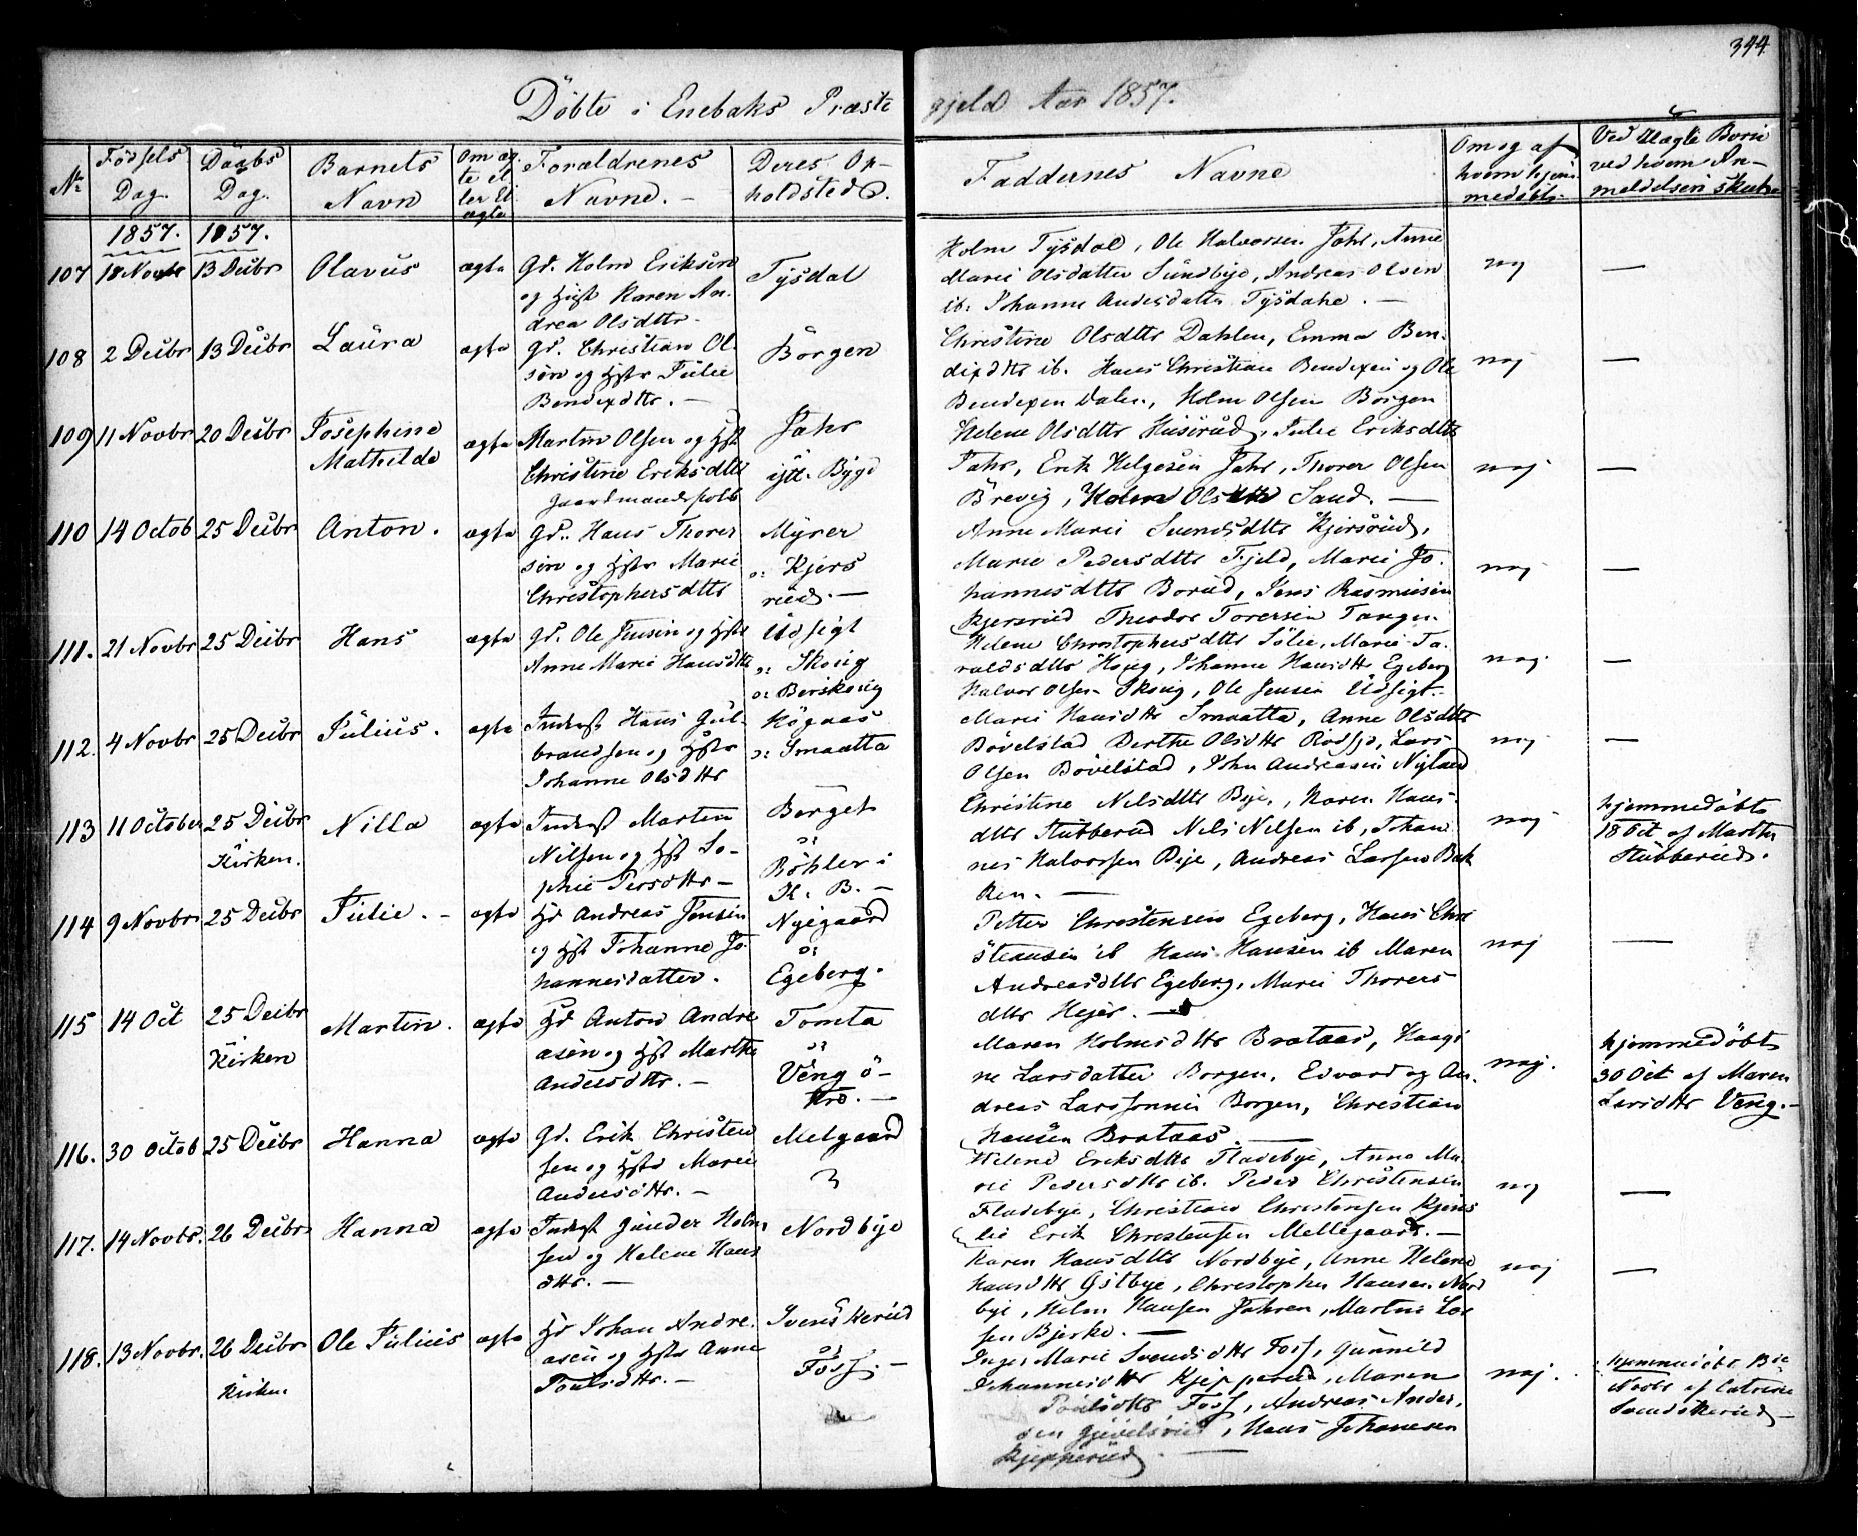 344
Döbte i Enebaks Præste gjeld Aar 1857.
No
Fødsels Dag.
Daabs Dag.
Barnets Navn
Om ægte eller Uægte
Forældrenes Navne. -
Deres Opholdsted.
Faddernes Navne
Om og af hvem hjemmedöbt
Ved Uægte Börn ved hvem Anmeldelsen skeet
1857. 1857.
107 18 Novbr 13 Decbr Olavus ægte
Gd. Holm Eriksen
og Hust Karen An-
drea Olsdttr -
Tysdal
Holm Tysdal, Ole Halvorsen Jahr, Anne
Marie Olsdatter Sundbye, Andreas Olsen
ib. Johanne Andersdatter Tysdahl. -
nej —
108 2 Decbr 13 Decbr Laura ægte
Gd. Christian Ol-
sen og Hstr Julie
Bendixdttr. -
Borgen
Christine Olsdttr Dahlen, Emma Ben-
dixdttr ib. Hans Christian Bendixen og Ole
Bendixen Dalen, Holm Olsen Borgen
nej —
109 11 Novbr 20 Decbr Josephine
Mathilde ægte
Martin Olsen og Hst
Christine Eriksdttr
Gaardmandsfolk
Jahr
ytt. Bygd
Helene Olsdttr Huserud, Julie Eriksdttr
Jahr, Erik Helgesen Jahr, Thorer Olsen
Brevig, Holm Olsen Sand. —
nej —
110 14 Octob 25 Decbr Anton. ægte
Gd. Hans Thorer
sen og Hstr Marie
Christophersdttr
Myrer
o: Kjers
rud. —
Anne Marie Svendsdttr Kjersrud,
Marie Pedersdttr Fjeld, Marie Jo
hannesdttr Borud, Jens Rasmusen
Kjersrud Theodor Torersen Tangen
nej —
111. 21 Novbr 25 Decbr Hans ægte
Gd. Ole Jensen og Hstr
Anne Marie Hansdttr
Udsigt
o: Skoug
o: Berskoug
Helene Christophersdttr Sölie, Marie Ta-
raldsdttr Houg, Johanne Hansdttr Egeberg
Halvor Olsen Skoug, Ole Jensen Udsigt.
nej —
112. 4 Novbr 25 Decbr Julius. ægte
Inderst Hans Gul-
brandsen og Hstr
Johanne Olsdttr
Högaas
o: Smaatta
Marie Hansdttr Smaatta, Anne Olsdttr
Bövelstad Berthe Olsdttr, Lars
Olsen Bövelstad, John Andreasen Nyland
nej —
113 11 October 25 Decbr
Kirken. Nilla ægte
Inderst Morten
Nilsen og Hst So-
phie Persdttr -
Borget
o:
Böhler i
K. B. -
Christine Nilsdttr Bye, Karen Hans-
dttr Stubberud Nels Nelsen ib, Johan
nes Halvorsen Bye, Andreas Larsen Bak
ken. —
nej
hjemmedöbt
18 Oct af Marthe
Stubberud.
114 9 Novbr 25 Decbr Julie. - ægte
Gd Andreas Jensen
og Hst Johanne Jo-
hannesdatter.
Nygaard
o:
Egeberg.
Petter Christensen Egeberg, Hans Chri
stiansen ib Hans Hansen ib Maren
Andreasdttr Egeberg, Marie Thorers
dttr Hejer. —
nej —
115 14 Oct 25 Decbr
Kirken Martin. ægte
Gd Anton Andre
asen og Hst Marthe
Andersdttr. -
Tomta
o:
Veng ö-
tre. -
Maren Holmsdttr Brataas, Haagi
ne Larsdatter Borgen, Edvard og An-
dreas Larssönner Borgen, Christian
Hansen Brataas. —
nej.
hjemmedöbt
30 Oct af Maren
Larsdttr Veng. -
116. 30 Octob 25 Decbr Hanna ægte
Gd. Erik Christen
sen og Hstr Marie
Andersdttr. -
Melgaard
Helene Eriksdttr Fladebye, Anne Ma-
rie Pedersdttr ib. Peder Christensen
Fladebye, Christian Christensen Kjens
lie Erik Christensen Mellegaard. -
nej —
117. 14 Novbr. 26 Decbr Hanna ægte
Inderst Gunder Holm
sen og Helene Hans
dttr. —
Nordbye
Karen Hansdttr Nordbye, Anne Helene
Hansdttr Östbye, Christopher Hansen Nord
bye, Holm Hansen Jahren, Martin Lar
sen Bjerke. —
nej —
118. 13 Novbr. 26 Decbr
Kirken Ole Julius ægte
Gd Johan Andre-
asen og Hstr Anne
Poulsdttr. -
Svenskerud
o:
Foss. -
Inger Marie Svendsdttr Foss, Gunnild
Johannesdttr Kjepperud, Maren
Poulsdttr Foss, Andreas Ander-
sen Gjevelsrud, Hans Johannesen
Kjepperud. —
nej.
hjemmedöbt
Novbr af Catrine
Svendskerud -